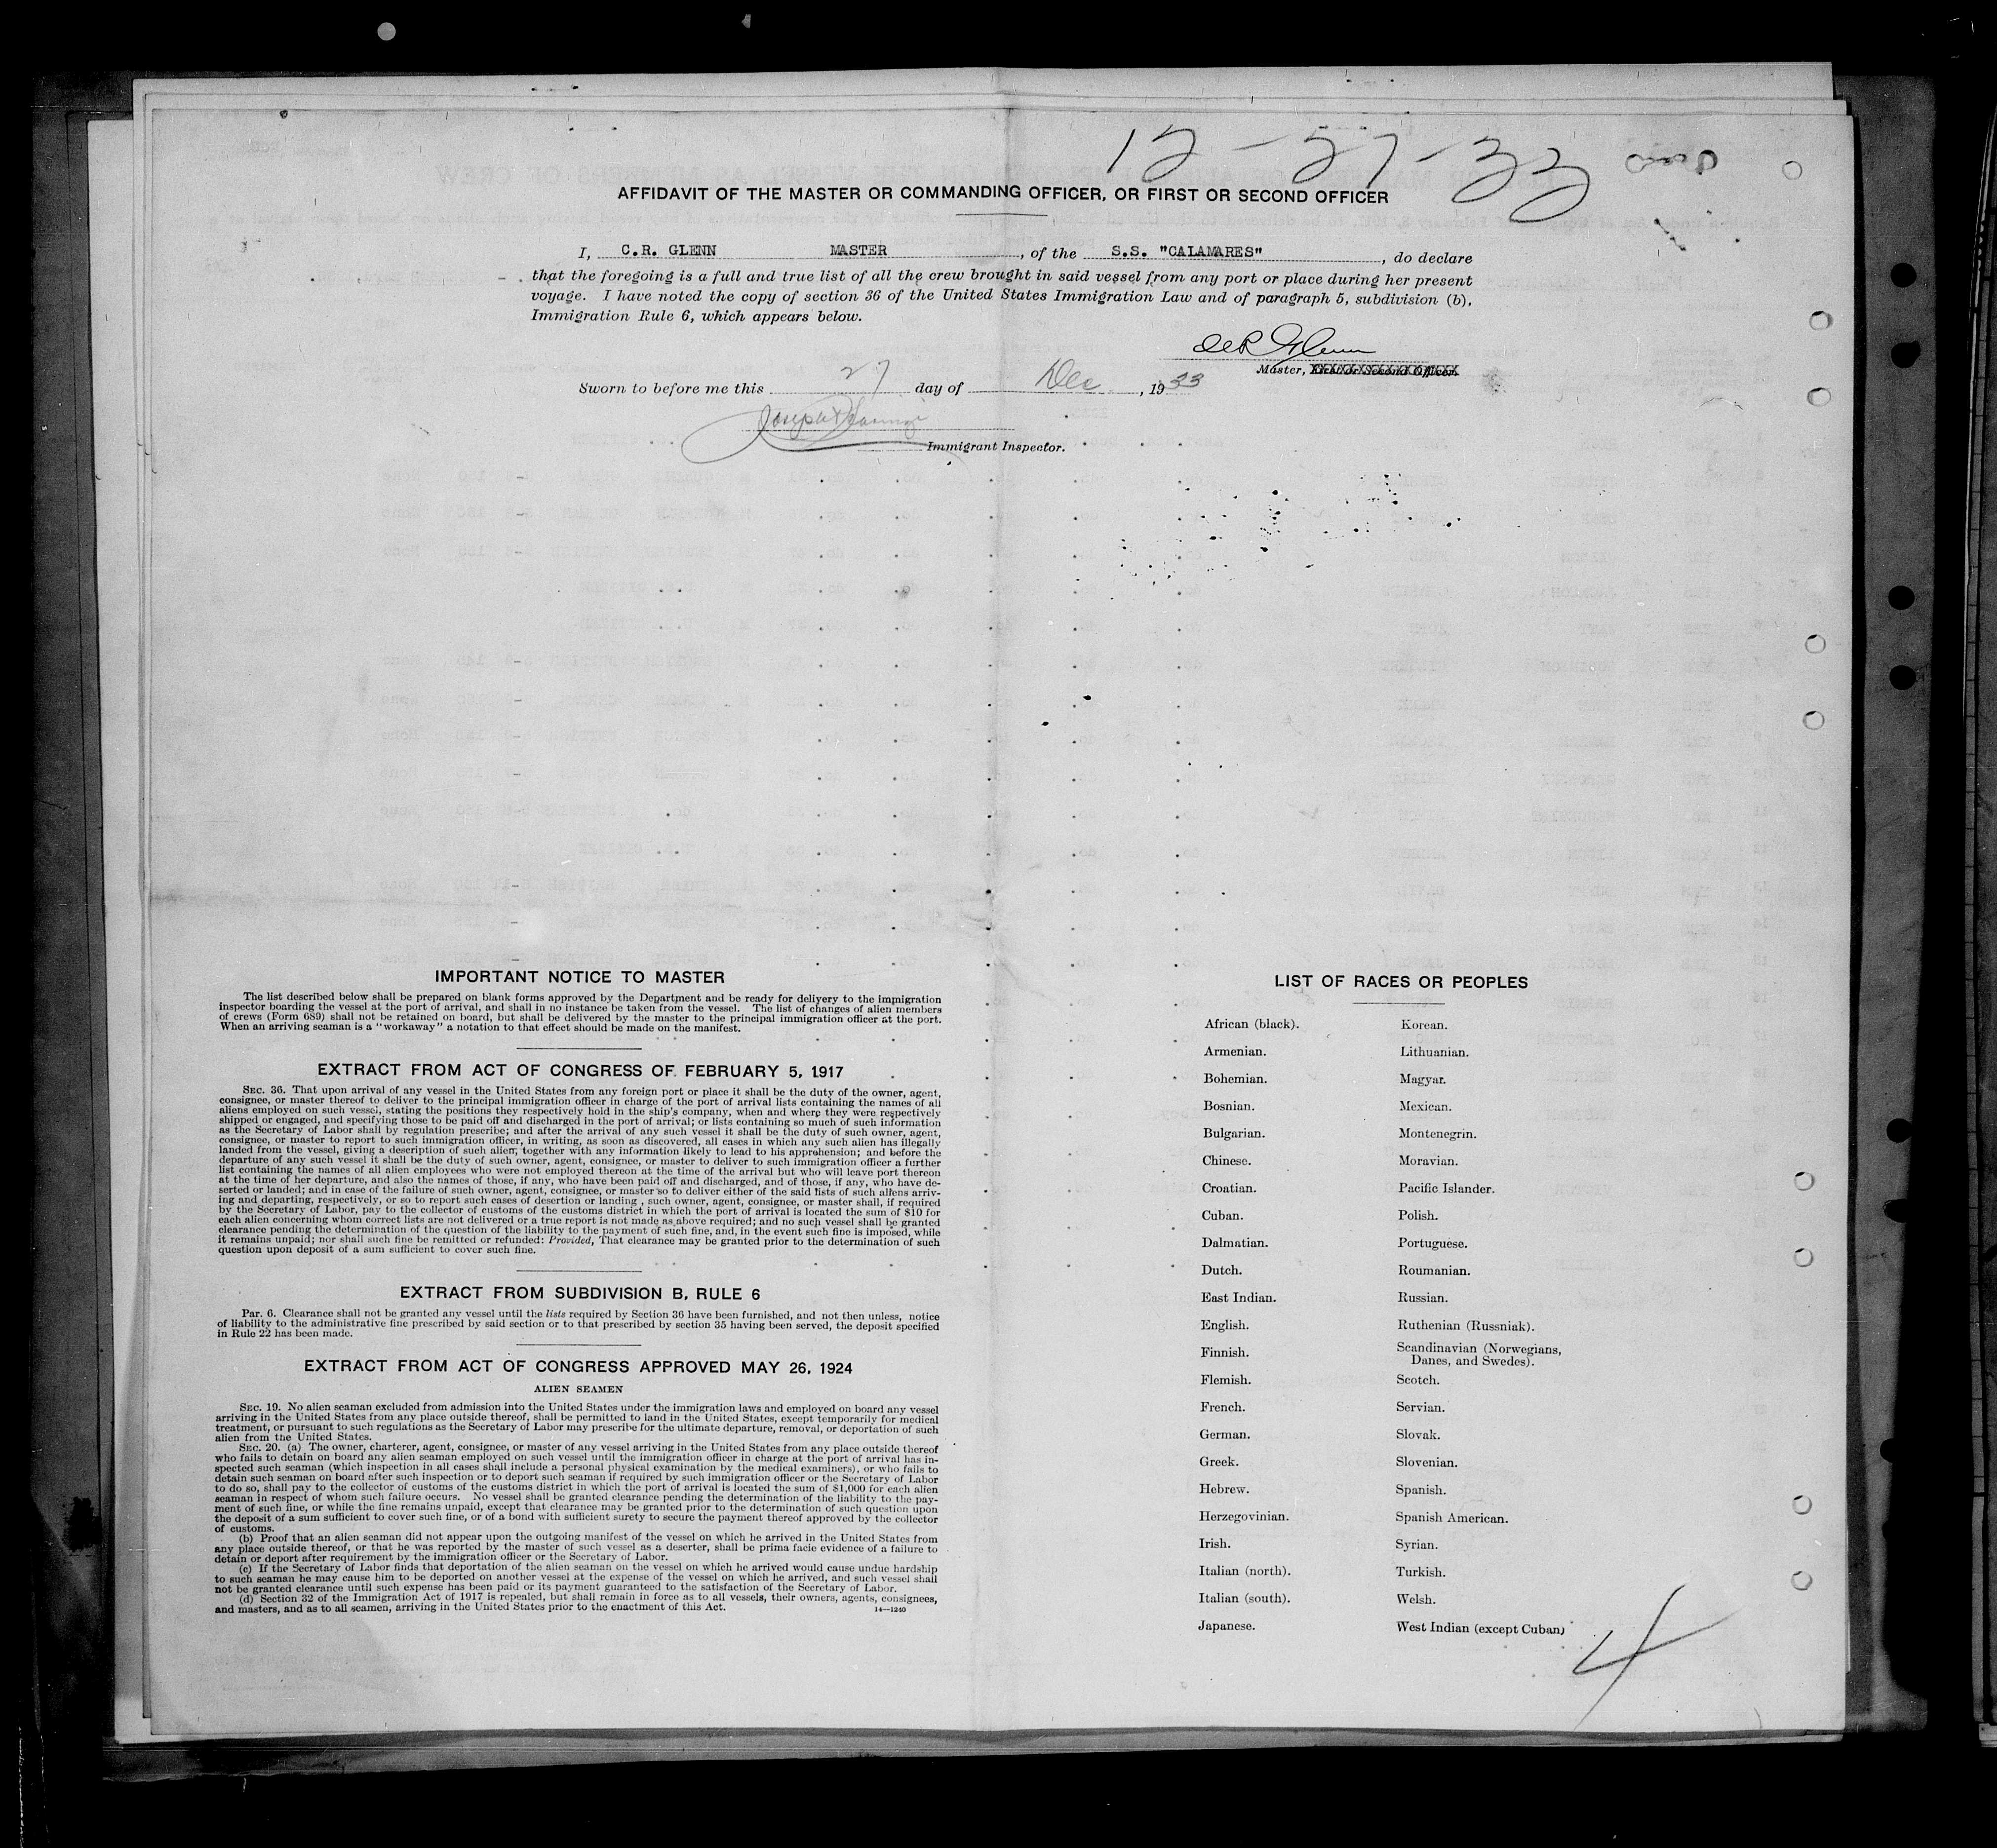 12-27-33
AFFIDAVIT OF THE MASTER OR COMMANDING OFFICER, OR FIRST OR SECOND OFFICER
I, C.R. GLENN MASTER, of the S.S. "CALAMARES", do declare
that the foregoing is a full and true list of all the crew brought in said vessel from any port or place during her present
voyage. I have noted the copy of section 36 of the United States Immigration Law and of paragraph 5, subdivision (b),
Immigration Rule 6, which appears below.
C R Glenn
Master, First or Second Officer.
Sworn to before me this 27 day of Dec, 1933
Joseph
Immigrant Inspector.
IMPORTANT NOTICE TO MASTER
The list described below shall be prepared on blank forms approved by the Department and be ready for delivery to the immigration
inspector boarding the vessel at the port of arrival, and shall in no instance be taken from the vessel. The list of changes of alien members
of crews (Form 689) shall not be retained on board, but shall be delivered by the master to the principal immigration officer at the port.
When an arriving seaman is a "workaway" a notation to that effect should be made on the manifest.
EXTRACT FROM ACT OF CONGRESS OF FEBRUARY 5, 1917
SEC. 36. That upon arrival of any vessel in the United States from any foreign port or place it shall be the duty of the owner, agent,
consignee, or master thereof to deliver to the principal immigration officer in charge of the port of arrival lists containing the names of all
aliens employed on such vessel, stating the positions they respectively hold in the ship's company, when and where they were respectively
shipped or engaged, and specifying those to be paid off and discharged in the port of arrival; or lists containing so much of such information
as the Secretary of Labor shall by regulation prescribe; and after the arrival of any such vessel it shall be the duty of such owner, agent,
consignee, or master to report to such immigration officer, in writing, as soon as discovered, all cases in which any such alien has illegally
landed from the vessel, giving a description of such alien, together with any information likely to lead to his apprehension; and before the
departure of any such vessel it shall be the duty of such owner, agent, consignee, or master to deliver to such immigration officer a further
list containing the names of all alien employees who were not employed thereon at the time of the arrival but who will leave port thereon
at the time of her departure, and also the names of those, if any, who have been paid off and discharged, and of those, if any, who have de-
serted or landed; and in case of the failure of such owner, agent, consignee, or master so to deliver either of the said lists of such aliens arriv-
ing and departing, respectively, or so to report such cases of desertion or landing , such owner, agent, consignee, or master shall, if required
by the Secretary of Labor, pay to the collector of customs of the customs district in which the port of arrival is located the sum of $10 for
each alien concerning whom correct lists are not delivered or a true report is not made as above required; and no such vessel shall be granted
clearance pending the determination of the question of the liability to the payment of such fine, and, in the event such fine is imposed, while
it remains unpaid; nor shall such fine be remitted or refunded: Provided, That clearance may be granted prior to the determination of such
question upon deposit of a sum sufficient to cover such fine.
EXTRACT FROM SUBDIVISION B, RULE 6
Par. 6. Clearance shall not be granted any vessel until the lists required by Section 36 have been furnished, and not then unless, notice
of liability to the administrative fine prescribed by said section or to that prescribed by section 35 having been served, the deposit specified
in Rule 22 has been made.
EXTRACT FROM ACT OF CONGRESS APPROVED MAY 26, 1924
ALIEN SEAMEN
SEC. 19. No alien seaman excluded from admission into the United States under the immigration laws and employed on board any vessel
arriving in the United States from any place outside thereof, shall be permitted to land in the United States, except temporarily for medical
treatment, or pursuant to such regulations as the Secretary of Labor may prescribe for the ultimate departure, removal, or deportation of such
alien from the United States.
SEC. 20. (a) The owner, charterer, agent, consignee, or master of any vessel arriving in the United States from any place outside thereof
who fails to detain on board any alien seaman employed on such vessel until the immigration officer in charge at the port of arrival has in-
spected such seaman (which inspection in all cases shall include a personal physical examination by the medical examiners), or who fails to
detain such seaman on board after such inspection or to deport such seaman if required by such immigration officer or the Secretary of Labor
to do so, shall pay to the collector of customs of the customs district in which the port of arrival is located the sum of $1,000 for each alien
seaman in respect of whom such failure occurs. No vessel shall be granted clearance pending the determination of the liability to the pay-
ment of such fine, or while the fine remains unpaid, except that clearance may be granted prior to the determination of such question upon
the deposit of a sum sufficient to cover such fine, or of a bond with sufficient surety to secure the payment thereof approved by the collector
of customs.
(b) Proof that an alien seaman did not appear upon the outgoing manifest of the vessel on which he arrived in the United States from
any place outside thereof, or that he was reported by the master of such vessel as a deserter, shall be prima facie evidence of a failure to
detain or deport after requirement by the immigration officer or the Secretary of Labor.
(c) If the Secretary of Labor finds that deportation of the alien seaman on the vessel on which he arrived would cause undue hardship
to such seaman he may cause him to be deported on another vessel at the expense of the vessel on which he arrived, and such vessel shall
not be granted clearance until such expense has been paid or its payment guaranteed to the satisfaction of the Secretary of Labor.
(d) Section 32 of the Immigration Act of 1917 is repealed, but shall remain in force as to all vessels, their owners, agents, consignees,
and masters, and as to all seamen, arriving in the United States prior to the enactment of this Act.
14—1240
LIST OF RACES OR PEOPLES
African (black). Korean.
Armenian. Lithuanian.
Bohemian. Magyar.
Bosnian. Mexican.
Bulgarian. Montenegrin.
Chinese. Moravian.
Croatian. Pacific Islander.
Cuban. Polish.
Dalmatian. Portuguese.
Dutch. Roumanian.
East Indian. Russian.
English. Ruthenian (Russniak).
Finnish. Scandinavian (Norwegians,
Danes, and Swedes).
Flemish. Scotch.
French. Servian.
German. Slovak.
Greek. Slovenian.
Hebrew. Spanish.
Herzegovinian. Spanish American.
Irish. Syrian.
Italian (north). Turkish.
Italian (south). Welsh.
Japanese. West Indian (except Cuban)
4